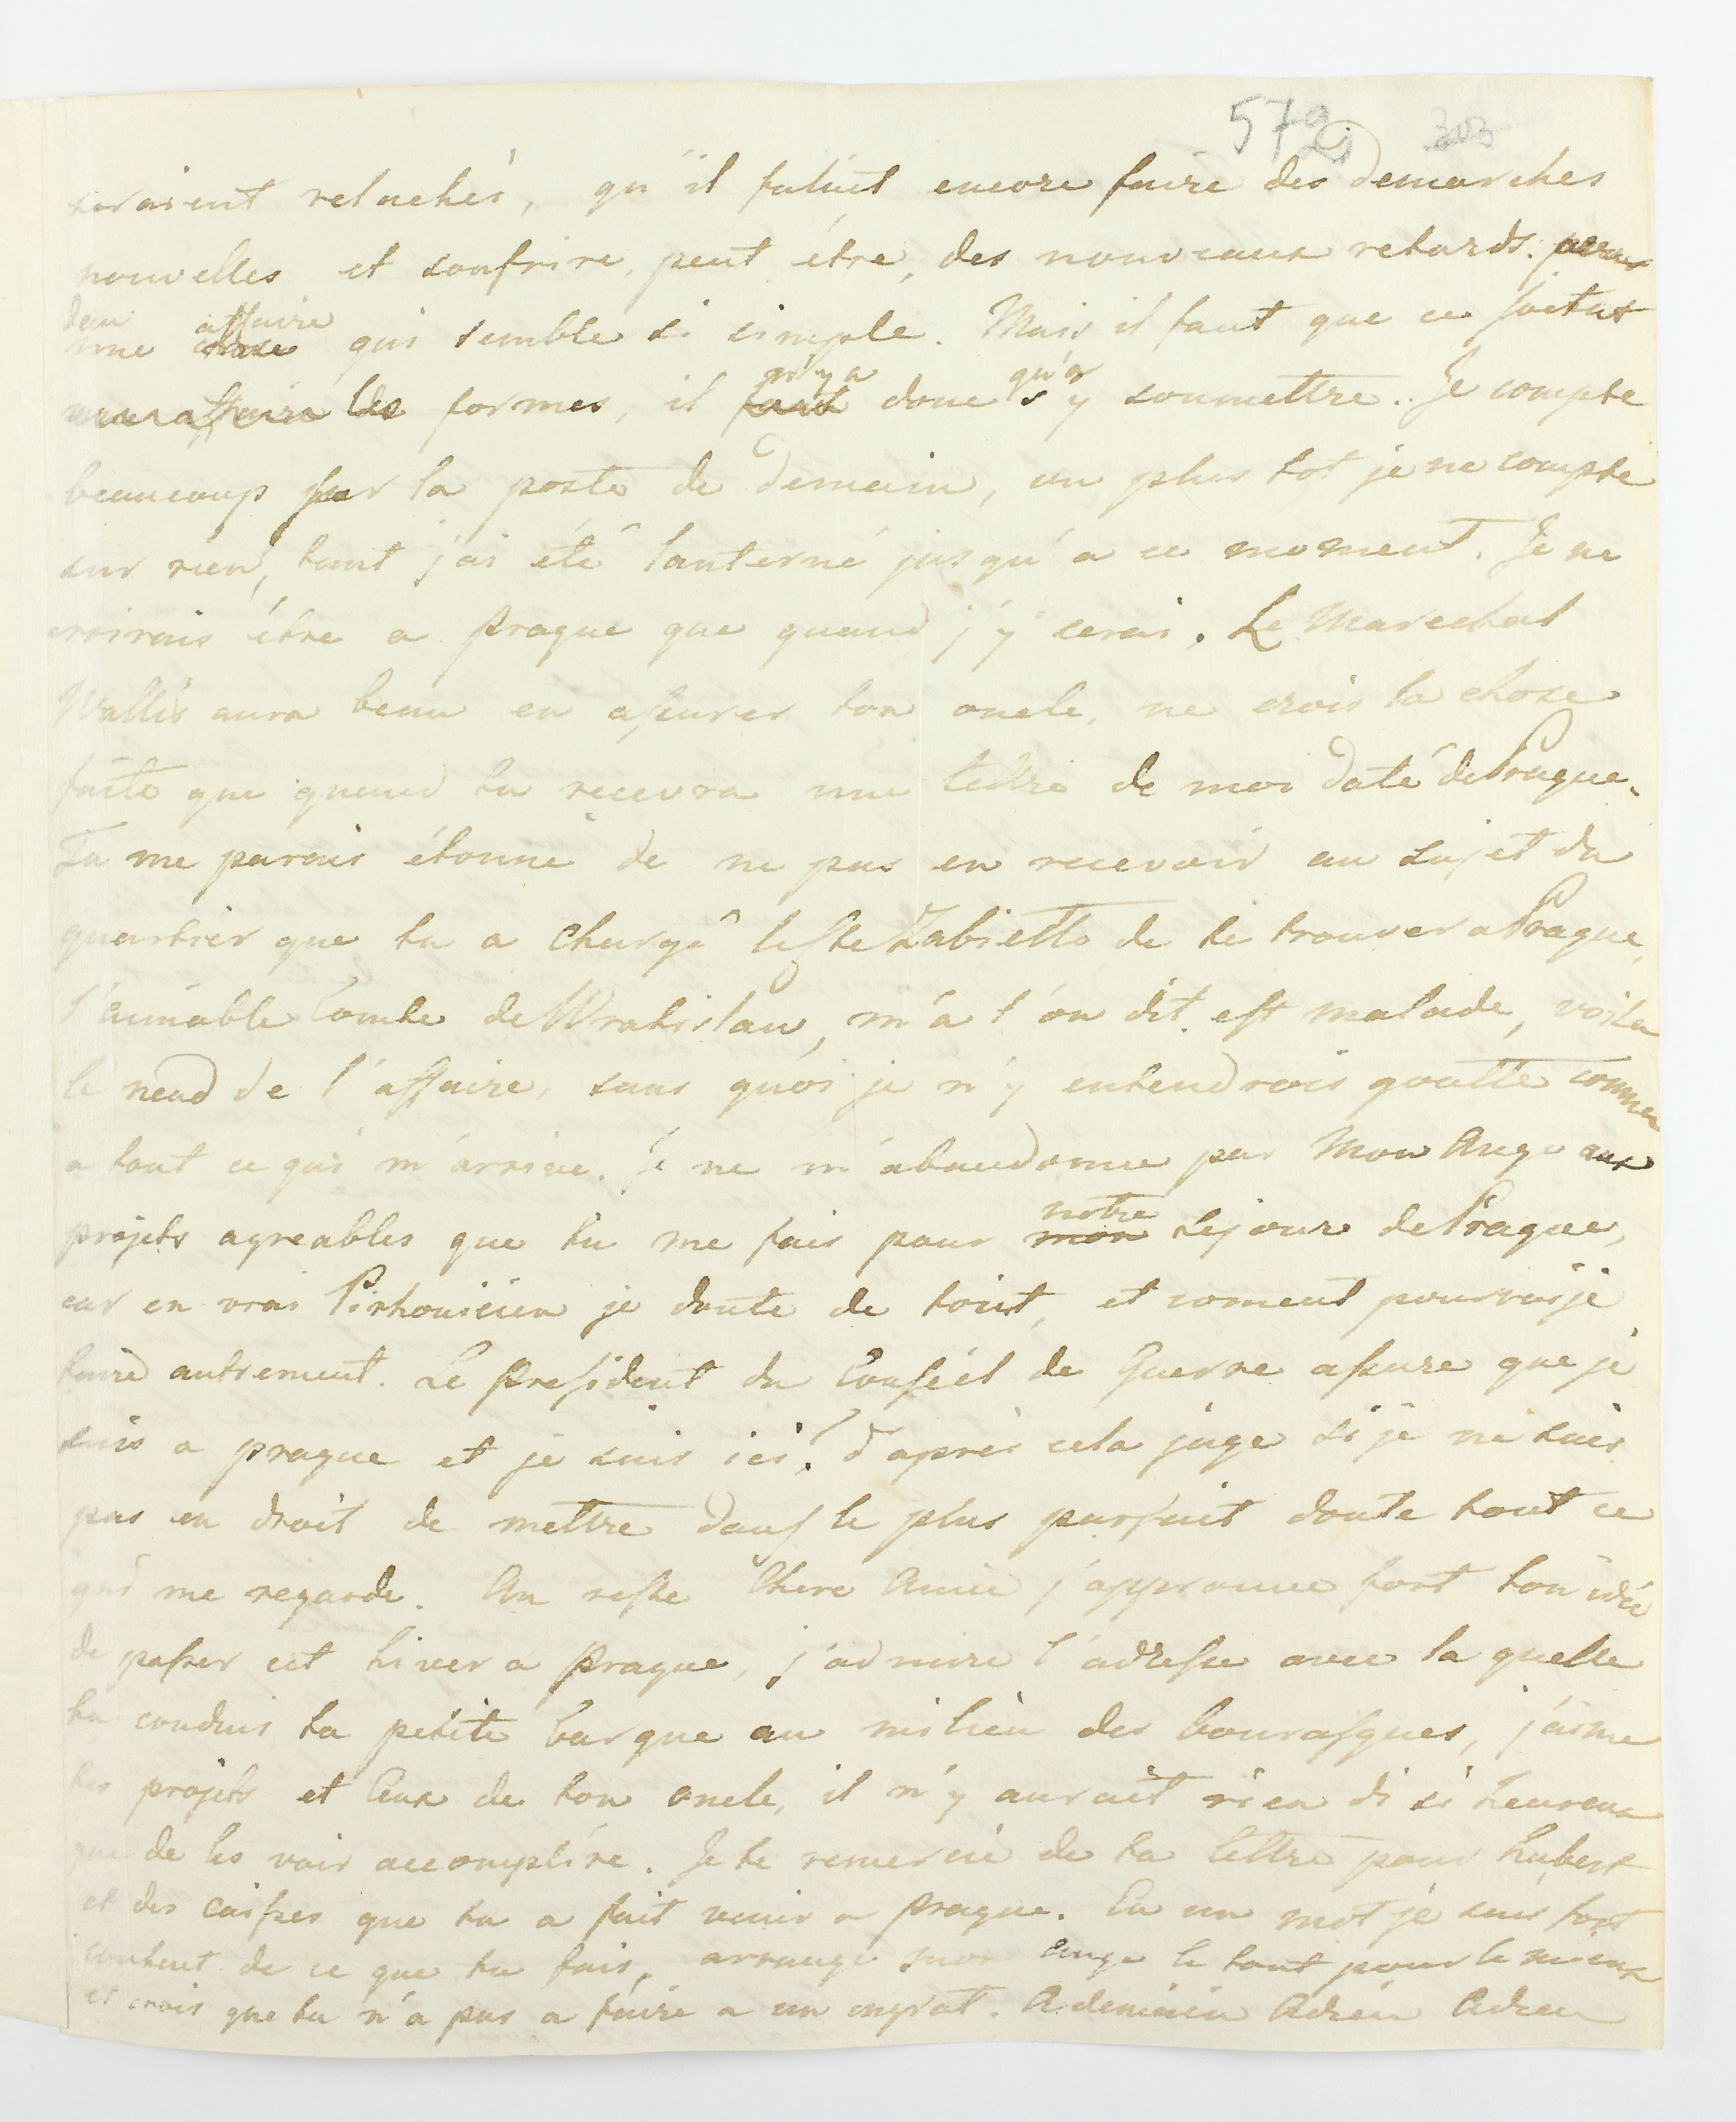 579
seraient relachés, qu'il falut encore faire des demarches
nouvelles et soufrire, peut étre, des nouveaux retards.
dans une affaire qui semble si simple. Mais il faut que ce soit
les formes, il n'y a donc qu'a s'y soumettre. Je compte
beaucoup sur la poste de demain, ou plus tot je ne compte
sur rien, tant j'ai été lanterné jusqu'a ce moment. Je ne
croirais étre a Prague que quand j'y serai. Le Marechal
Wallis aura beau en assurer ton oncle, ne crois la chose
faite que quand tu recevra une lettre de moi daté de Prague.
Tu me parais étonné de ne pas en recevoir au sujet du
quartier que tu a chargé leste Zabiello de te trouver a Prague,
l'aimable Comte de Wratislau, m'a t'on dit est malade, voila
le neud de l'affaire, sans quoi je n'y entendrois goutte comme
a tout ce qui m'arrive. Je ne m'abandonne pas Mon Ange aux
projets agreables que tu me fais pour mon notre sejour de Prague,
car en vrai Pirhonicien je doute de tout, et coment pourrais je
faire autrement. Le President du Conseil de Guerre assure que je
suis a prague et je suis ici! d'aprés cela juge si je ne suis
pas en droit de mettre dans le plus parfait doute tout ce
qui me regarde. Au reste Chere Amie j'approuve fort ton idée
de passer cet hiver a Prague, j'admire l'adresse avec la quelle
tu conduis ta petite barque au milieu des bourasques, j'aime
tes projets et Ceux de ton oncle, il n'y aurait rien di si heureux
que de les voir accomplire. Je te remercie de ta lettre pour Lubert
et des caisses que tu a fait venir a Prague. En un mot je suis fort
content de ce que tu fais, arrange mon ange le tout pour le mieux
et crois que tu n'a pas a faire a un ingrat. A demain Adieu Adieu